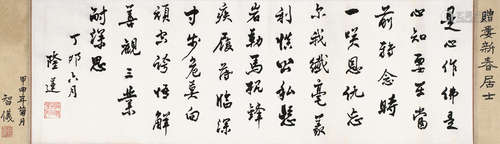 贈婁新春居士
是心作佛是
心知要在當
前轉念時
一咲恩仇忘
尔我纖毫義
利慎公私懸
岩勒馬机鋒
疾履薄臨深
寸步危莫向
頑空誇悟解
善觀三業
耐深思
丁卯六月
隆蓮
甲申年菊月
智儀